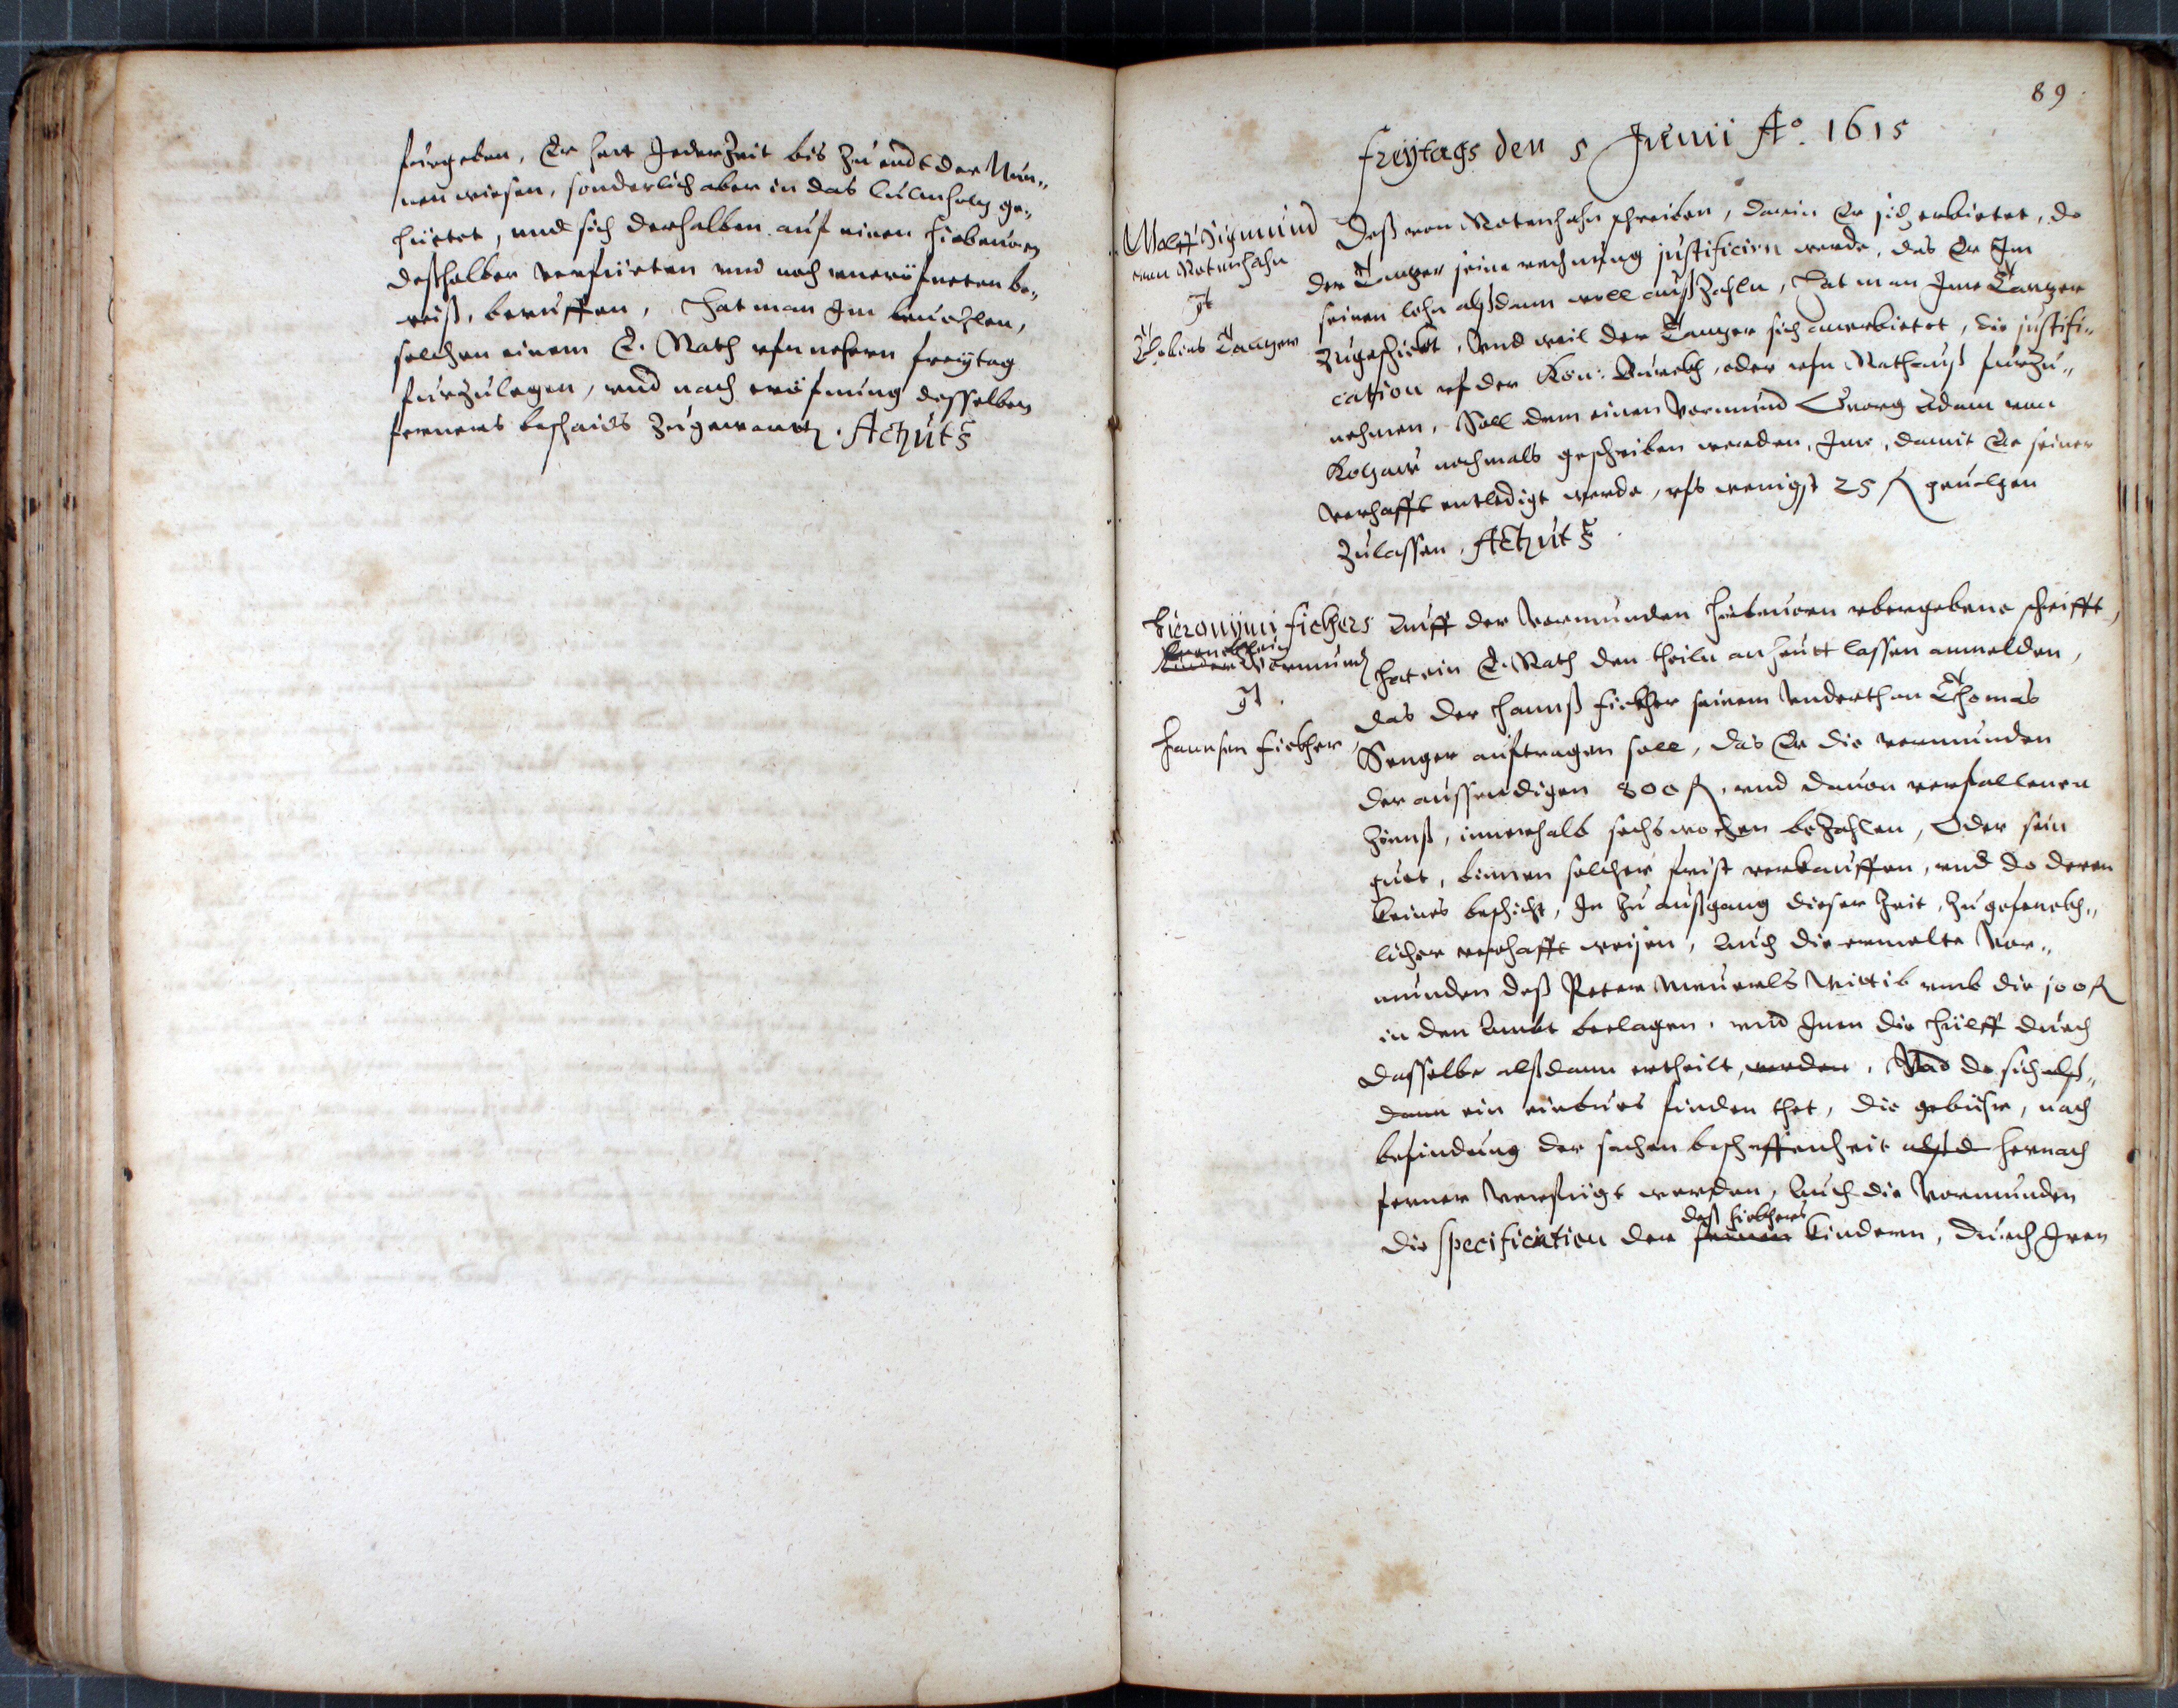 fürgeben, Er hett Jederzeit bis zu endt der Nun„
nen wiesen, sonderlich aber in das Culmholtz ge„
hüetet, und sich derhalben auf einen hieuorn
deßhalben verfürten und noch uneröfneten be„
weiß, beruffen, Hat man Jm beuohlen,
solchen einem E. Rath ufn nehern freytag
furzulegen, und nach eröfnung desselben
ferners beschaids zugewartten. Act. ut s.
89
Freytags den 5 Junii Ao. 1615
Wolff Sigmund
von Rotenhahn
Jt
Thobias Tantzer
Deß von Rotenhahn schreiben, darin Er sich erbietet, do
der Tantzer seine rechnung justificirn werde, das Er Jm
seinen lohn alßdann woll außzahln, Hat man Jme Tantzer
zugeschickt, Und weil der Tantzer sich anerbietet, die justifi„
cation uf der Kön: Burckh, oder ufn Rathauß fürzu„
nehmen, Soll dem einen Vormund Georg Adam von
Kotzaw nochmals geschriben werden, Jme, damit Er seiner
verhafft entledigt werde, ufs wenigst 25 fl geuolgen
zulassen. Act. ut s.
Hieronymi Fickhers
Kinder Vormund
Jt.
Hannsen Fickher
Auff der Vormunden hieuorn ubergebene schrifft,
hat ein E. Rath den theiln an heutt lassen anmelden,
das der Hannß Fickher seinem Underthan Thomas
Senger auftragen soll, das Er die vormunden
der ausstendigen 800 fl, und dauon verfallenen
zinnß, innerhalb sechs wochen bezahlen, Oder sein
guet, binnen solcher frist verkauffen, und do deren
keines beschicht, Jn zu außgang dieser Zeit, zu gefenckh„
licher verhafft weisen, Auch die ermelte Vor„
munden deß Peter Meuerls Wittib umb die 100 fl
in den Ambt beclagen, und Jnen die Hülff durch
dasselbe alßdann ertheilt, werden, Und do sich alß„
dann ein einbues finden thet, die gebühr, nach
befindung der sachen beschaffenheit alßd hernach
ferner verfügt werden, Auch die Vormunden
deß Fickhers
die specification der seinen Kindern, durch Jren